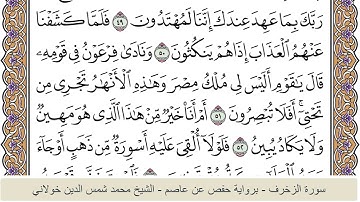 رَبَّكَ بِمَا عَهِدَ عِندَكَ إِنَّنَا لَمُهْتَدُونَ ٤٩ فَلَمَّا كَشَفْنَا
عَنْهُمُ ٱلْعَذَابَ إِذَا هُمْ يَنكُثُونَ ٥٠ وَنَادَىٰ فِرْعَوْنُ فِى قَوْمِهِۦ
قَالَ يَٰقَوْمِ أَلَيْسَ لِى مُلْكُ مِصْرَ وَهَٰذِهِ ٱلْأَنْهَٰرُ تَجْرِى مِن
تَحْتِىٓ أَفَلَا تُبْصِرُونَ ٥١ أَمْ أَنَا۠ خَيْرٌ مِّنْ هَٰذَا ٱلَّذِى هُوَ مَهِينٌ
وَلَا يَكَادُ يُبِينُ ٥٢ فَلَوْلَآ أُلْقِىَ عَلَيْهِ أَسْوِرَةٌ مِّن ذَهَبٍ أَوْ جَآءَ
سورة الزخرف - برواية حفص عن عاصم - الشيخ محمد شمس الدين خولاني